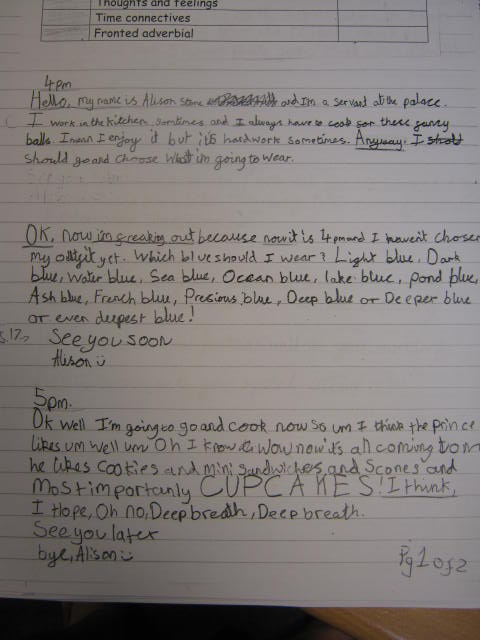 Thoughts and feelings
Time connectives
Fronted adverbial
4pm
Hello, my name is Alison Stone and I'm a servant at the palace.
I work in the kitchen sometimes and I always have to cook for these
balls. I mean I enjoy it but it's hard work sometimes. Anyway, I
should go and choose what im going to wear.
OK, now im freaking out because now it is 4pm and I havent chosen
my yet. Which blue should I wear? Light blue, Dark
blue, Water blue, Sea blue, Ocean blue, lake blue, pond blue,
Ash blue, French blue, Presious blue, Deep blue or Deeper blue
or even deepest blue!
See you soon
Alison
5pm.
Ok well I'm going to go and cook now so um I think the prince
likes um well um Oh I know Wow now it's all coming to
he likes Cookies and mini sandwiches and Scones and
Most importanly CUPCAKES! I think,
I Hope, Oh no, Deep breath, Deep breath.
See you later
bye, Alison
Pg 1 of 2